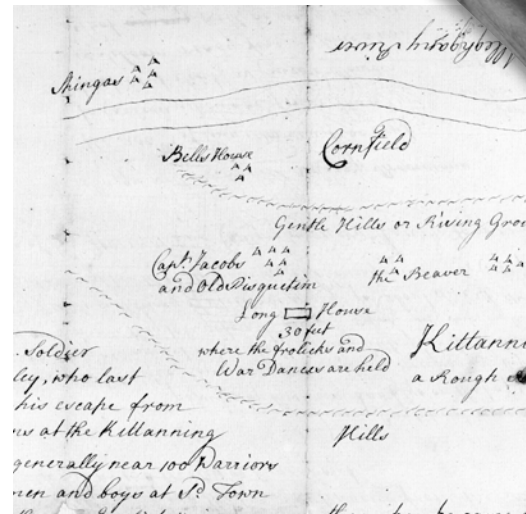 Allegheny River
Shingas
Bells House
Cornfield
Gentle Hills or Rising Grou
Capt. Jacobs
and Old Pisquetim
the Beaver
Long House
30 feet
where the frolicks and
War Dances are held
Kittanni
a Rough
. Soldier
ley, who last
his escape from
ns at the Kittanning
generally near 100 Warriors
men and boys at Sd. Town
Hills